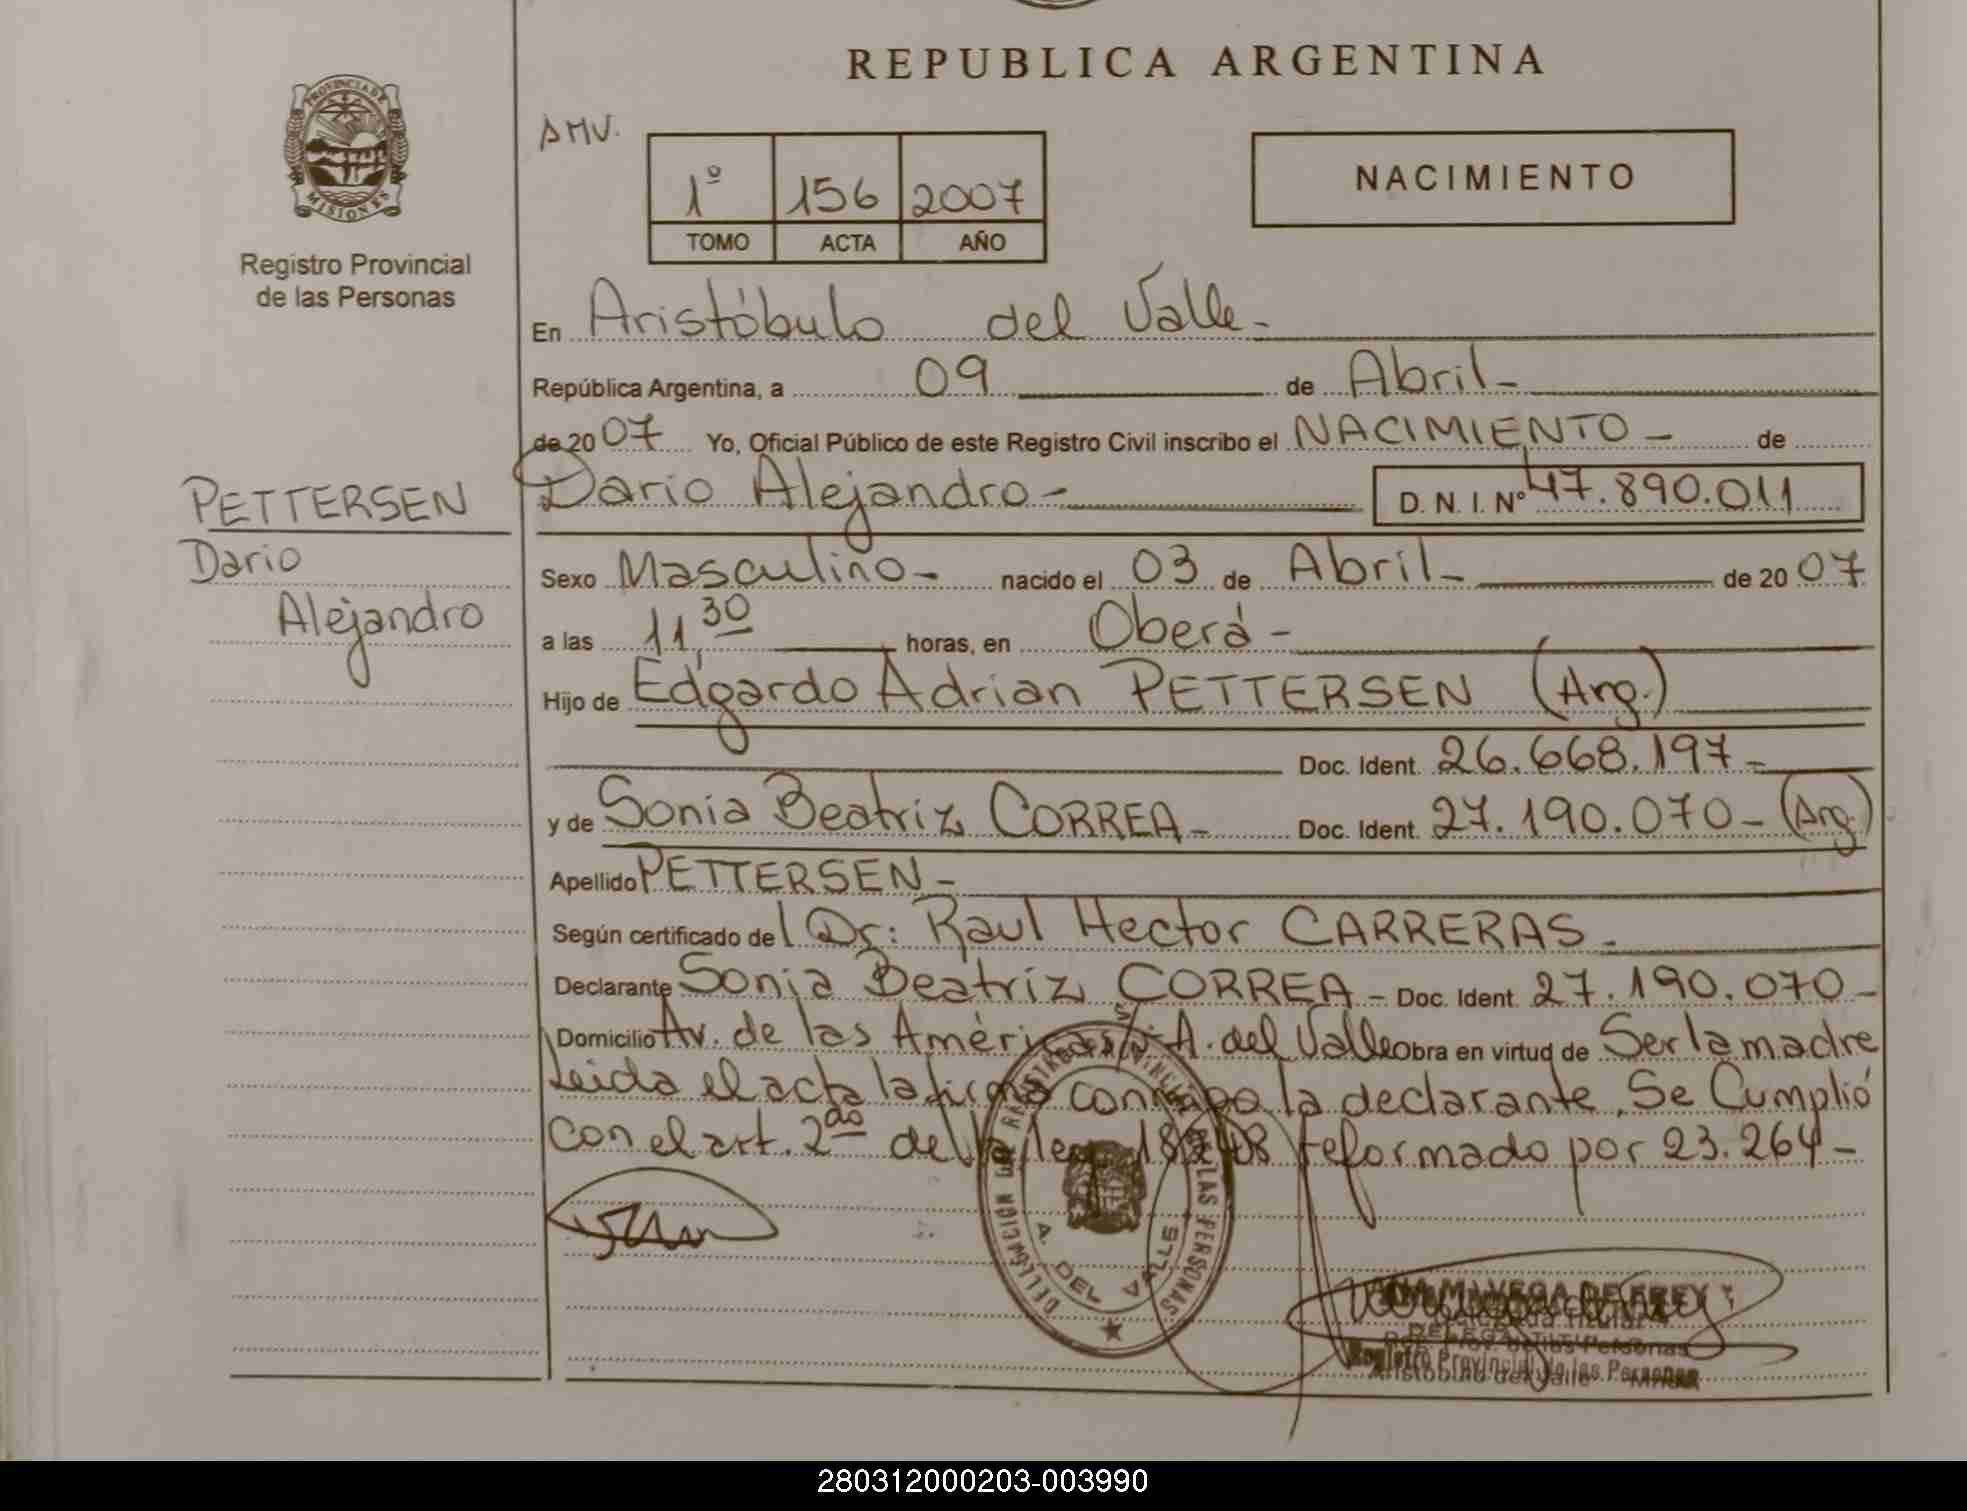 REPUBLICA ARGENTINA
PROVINCIA DE
MISIONES
Registro Provincial
de las Personas
AMV.
1º 156 2007
TOMO ACTA AÑO
NACIMIENTO
En Aristóbulo del Valle-
República Argentina, a 09 de Abril-
de 2007 Yo, Oficial Público de este Registro Civil inscribo el NACIMIENTO- de
PETTERSEN
Dario
Alejandro
Dario Alejandro- D. N. I. Nº 47.890.011
Sexo Masculino- nacido el 03 de Abril- de 2007
a las 11,30 horas, en Oberá-
Hijo de Edgardo Adrian PETTERSEN (Arg.)
Doc. Ident. 26.668.197-
y de Sonia Beatriz CORREA- Doc. Ident. 27.190.070- (Arg)
Apellido PETTERSEN-
Según certificado del Dr: Raul Hector CARRERAS-
Declarante Sonia Beatriz CORREA- Doc. Ident. 27.190.070-
Domicilio Av. de las Américas A. del Valle Obra en virtud de Ser la madre
Leida el acta la firma conmigo la declarante. Se Cumplió
con el art. 2do de la ley 18248 reformado por 23.264-
DE LAS PERSONAS
A. DEL VALLE
ANA M. VEGA DE FREY
Delegada Titular
Registro Provincial de las Personas
Aristóbulo del Valle
280312000203-003990